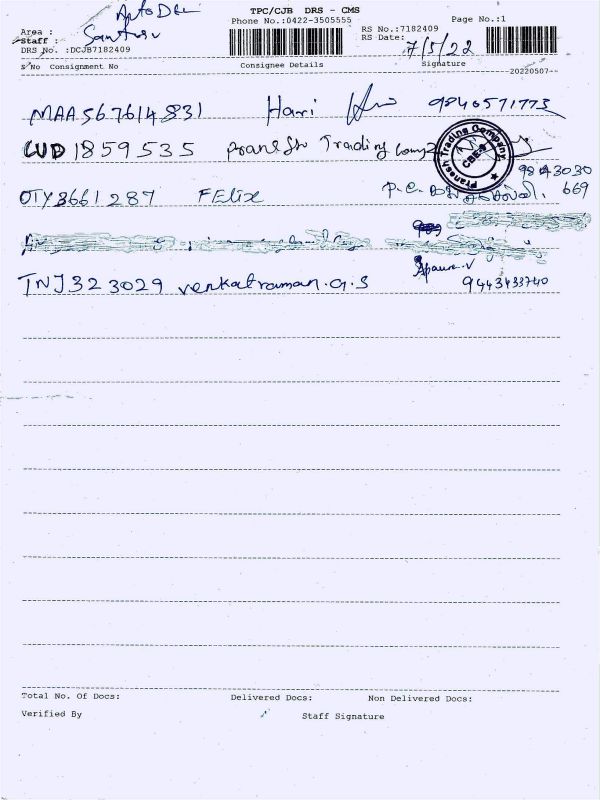 TPC/CJB DRS - CMS
Phone No.:0422-3505555
Page No.:1
Area :
Staff :
DRS No. :DCJB7182409
RS No.:7182409
RS Date:
7/5/22
S No Consignment No Consignee Details Signature
--20220507--
MAA567614831 Hari 9840571773
CUD1859535 Trading
Pranesh Trading Company
CBE-9
OTY3661287 FEliX
9843030
669
TNJ323029 venkatraman.G.S
9443433740
Total No. Of Docs: Delivered Docs: Non Delivered Docs:
Verified By Staff Signature